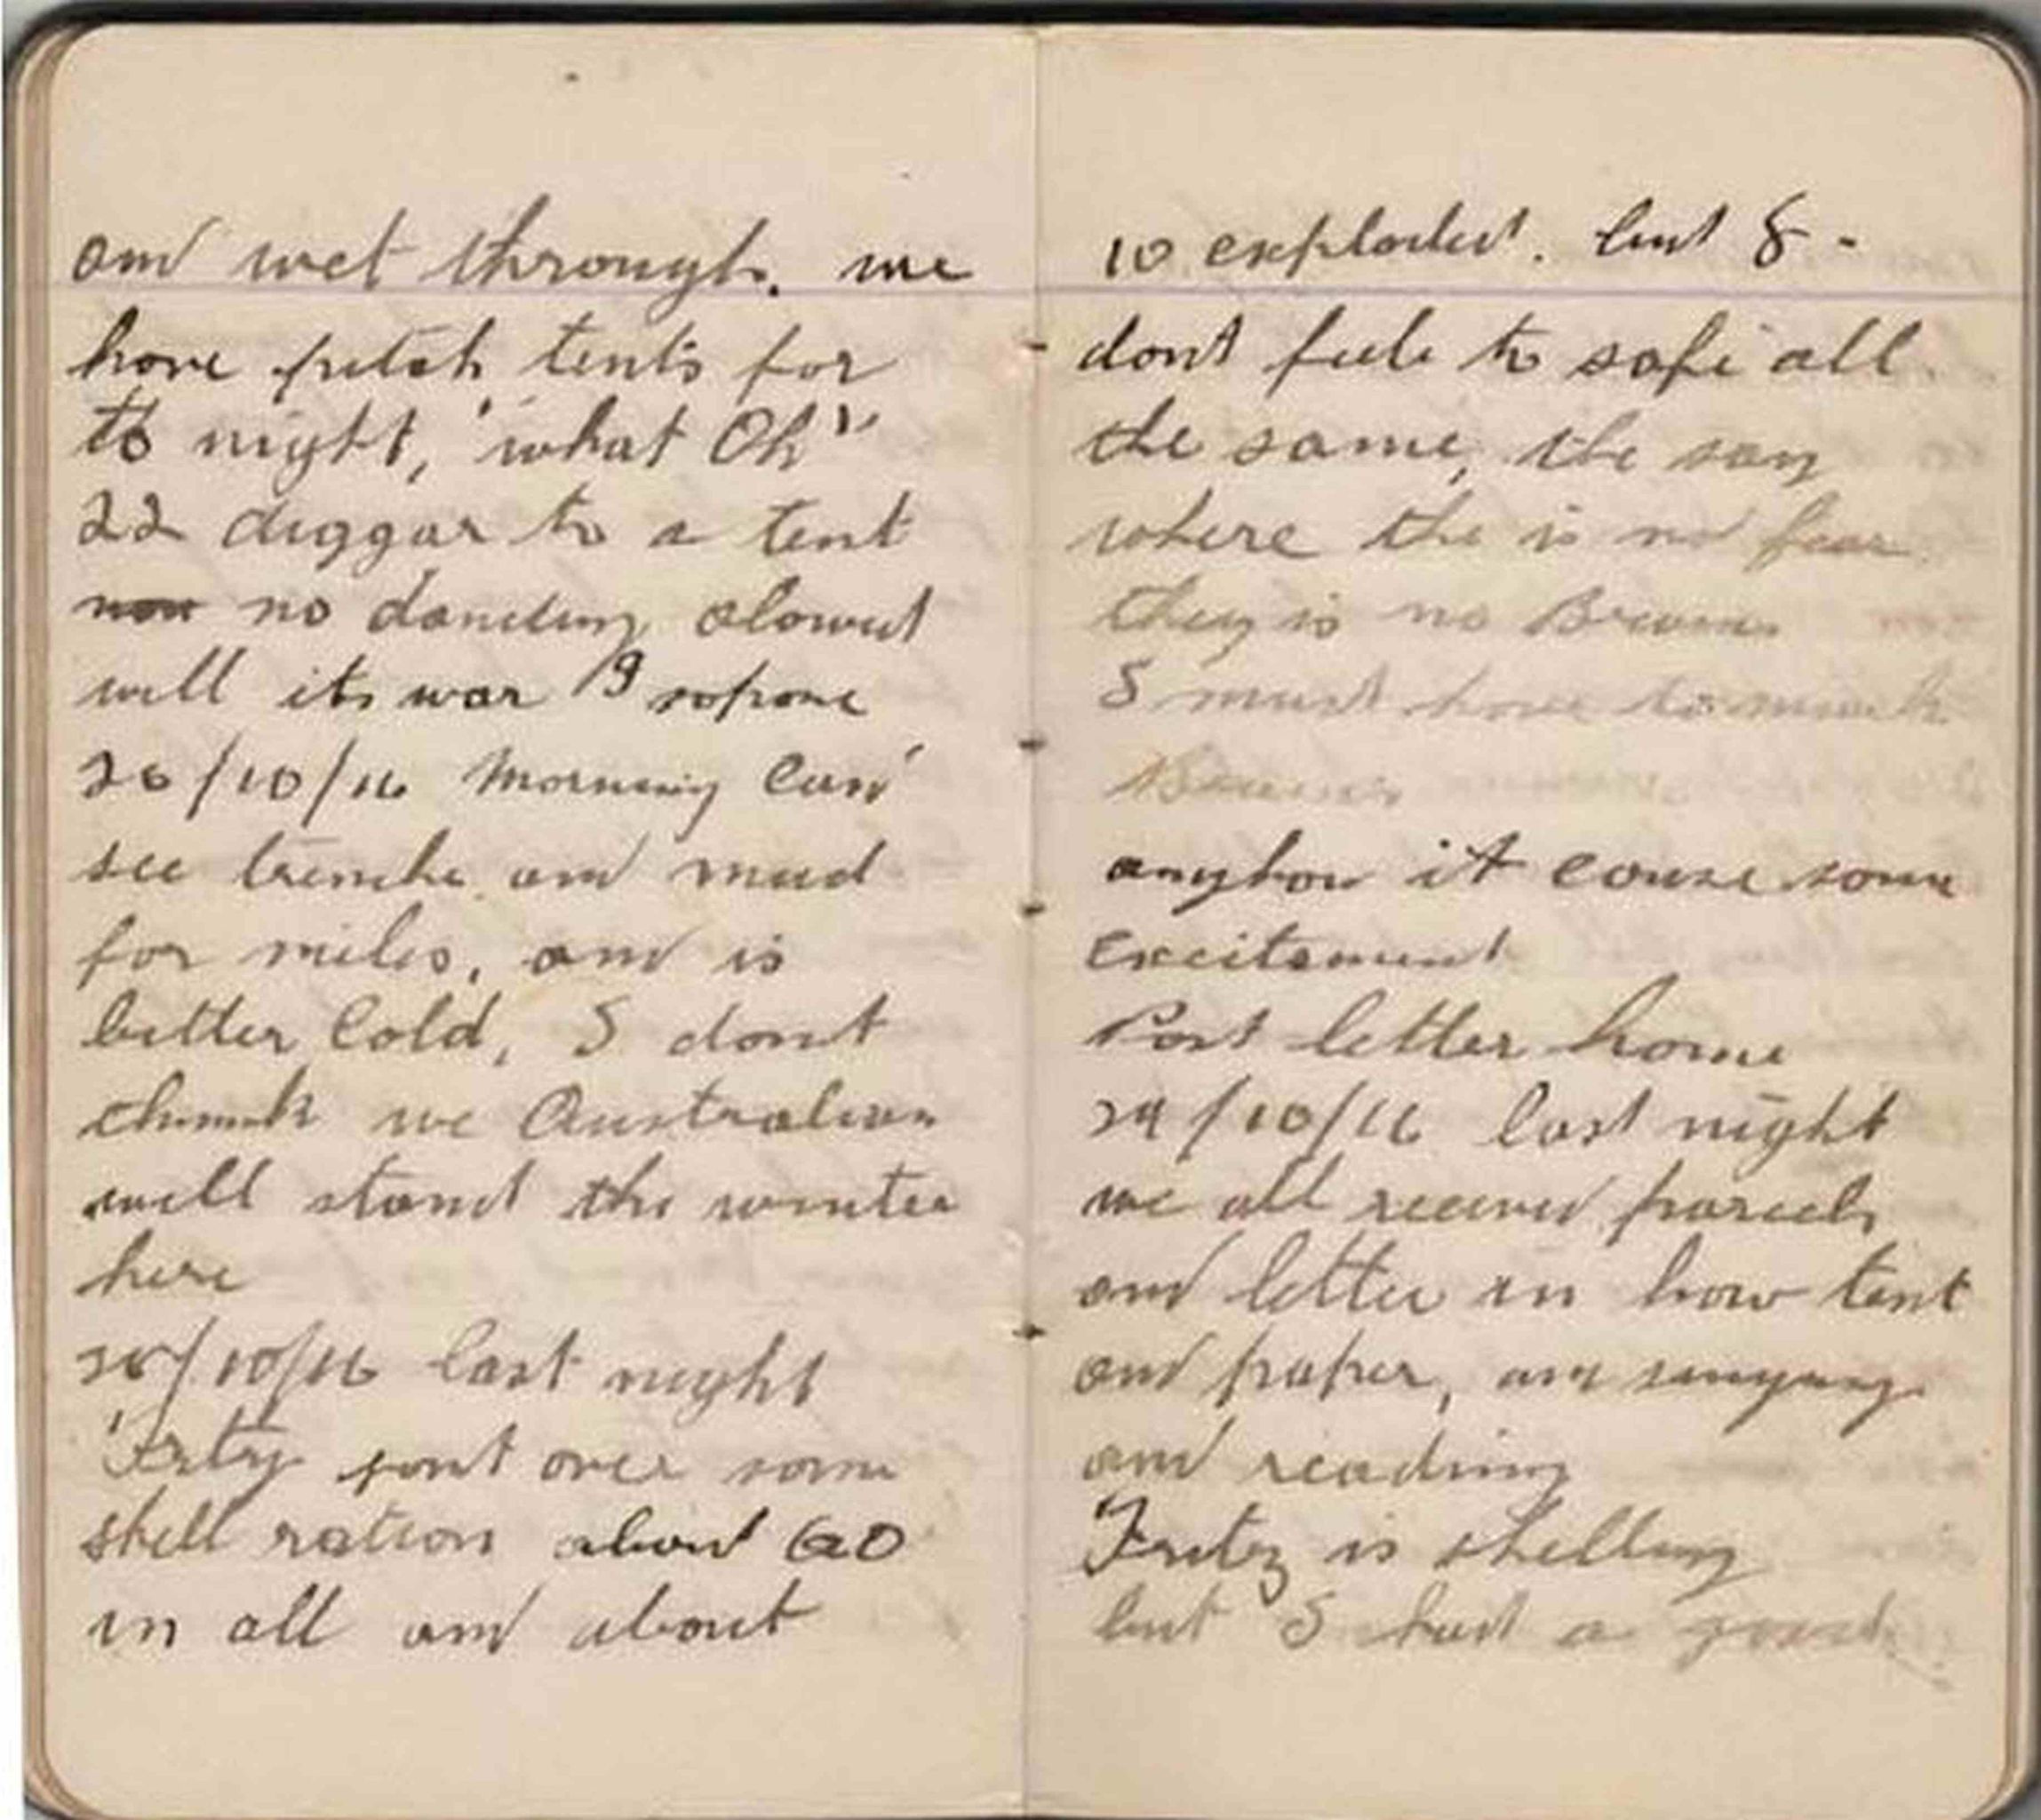 and wet through. we
have pitch tents for
to night, "what Oh"
22 diggar to a tent
no dancing alowed
well its war I sopose
26/10/16 Morning Can
see trenche and mud
for miles, and is
bitter Cold, I dont
think we Australian
will stand the winter
here
28/10/16 last night
Fritz sent over some
shell ration about 60
in all and about
10 exploded. but I -
dont feele to safe all
the same, the say
where the is no fear
they is no Brains
I must have to much
Brains
anyhow it couse some
excitement
Post letter home
29/10/16 last night
we all receved parcels
and letter in how tent
and paper, am
and reading
Fritz is shelling
but I had a good